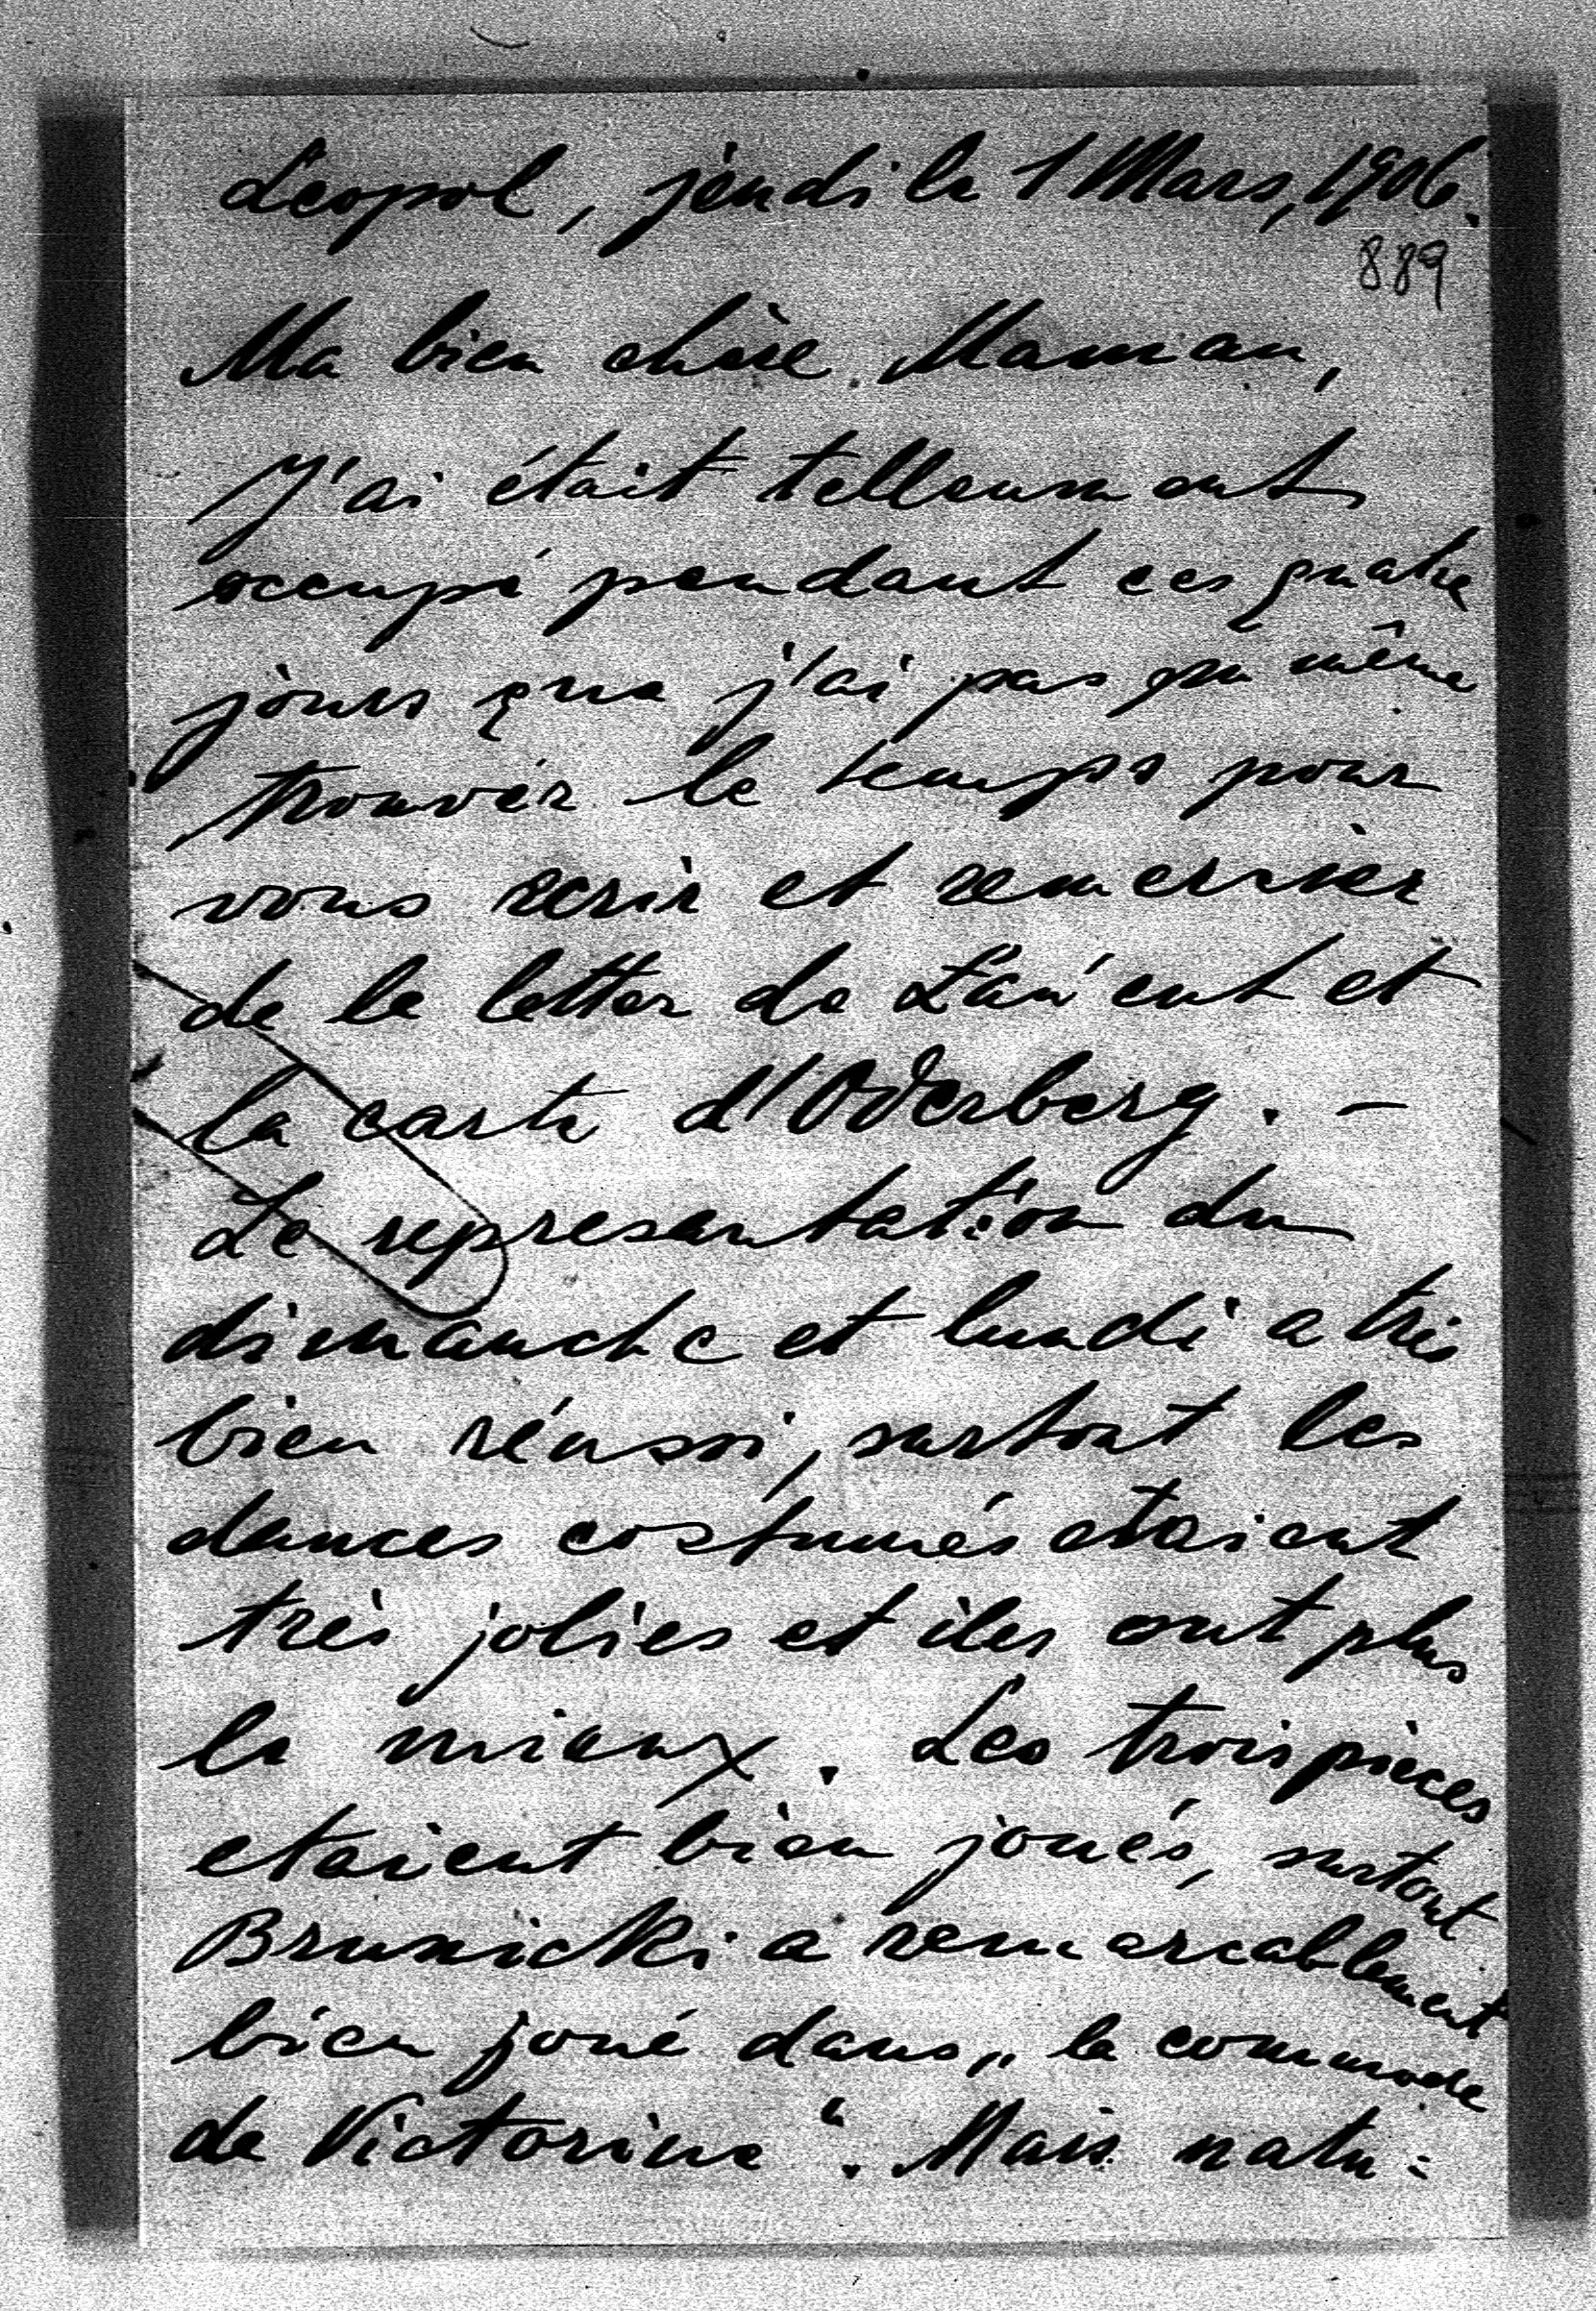 Léopol, jeudi le 1 Mars, 1906.
889
Ma bien chère Maman,
J'ai était tellemment
occupé pendant ces quatre
jours que j'ai pas pu même
trouvér le temps pour
vous ecrir et remercier
de le letter de et
la carte d'Oderberg. —
Le representation du
dimanche et lundi a très
bien réussi, surtout les
dances costumés etaient
très jolies et iles ont plus
le mieux. Les trois pièces
etaient bien joués, surtout
Brunicki a remarcablement
bien joué dans „la commode
de Victorine“. Mais natu=